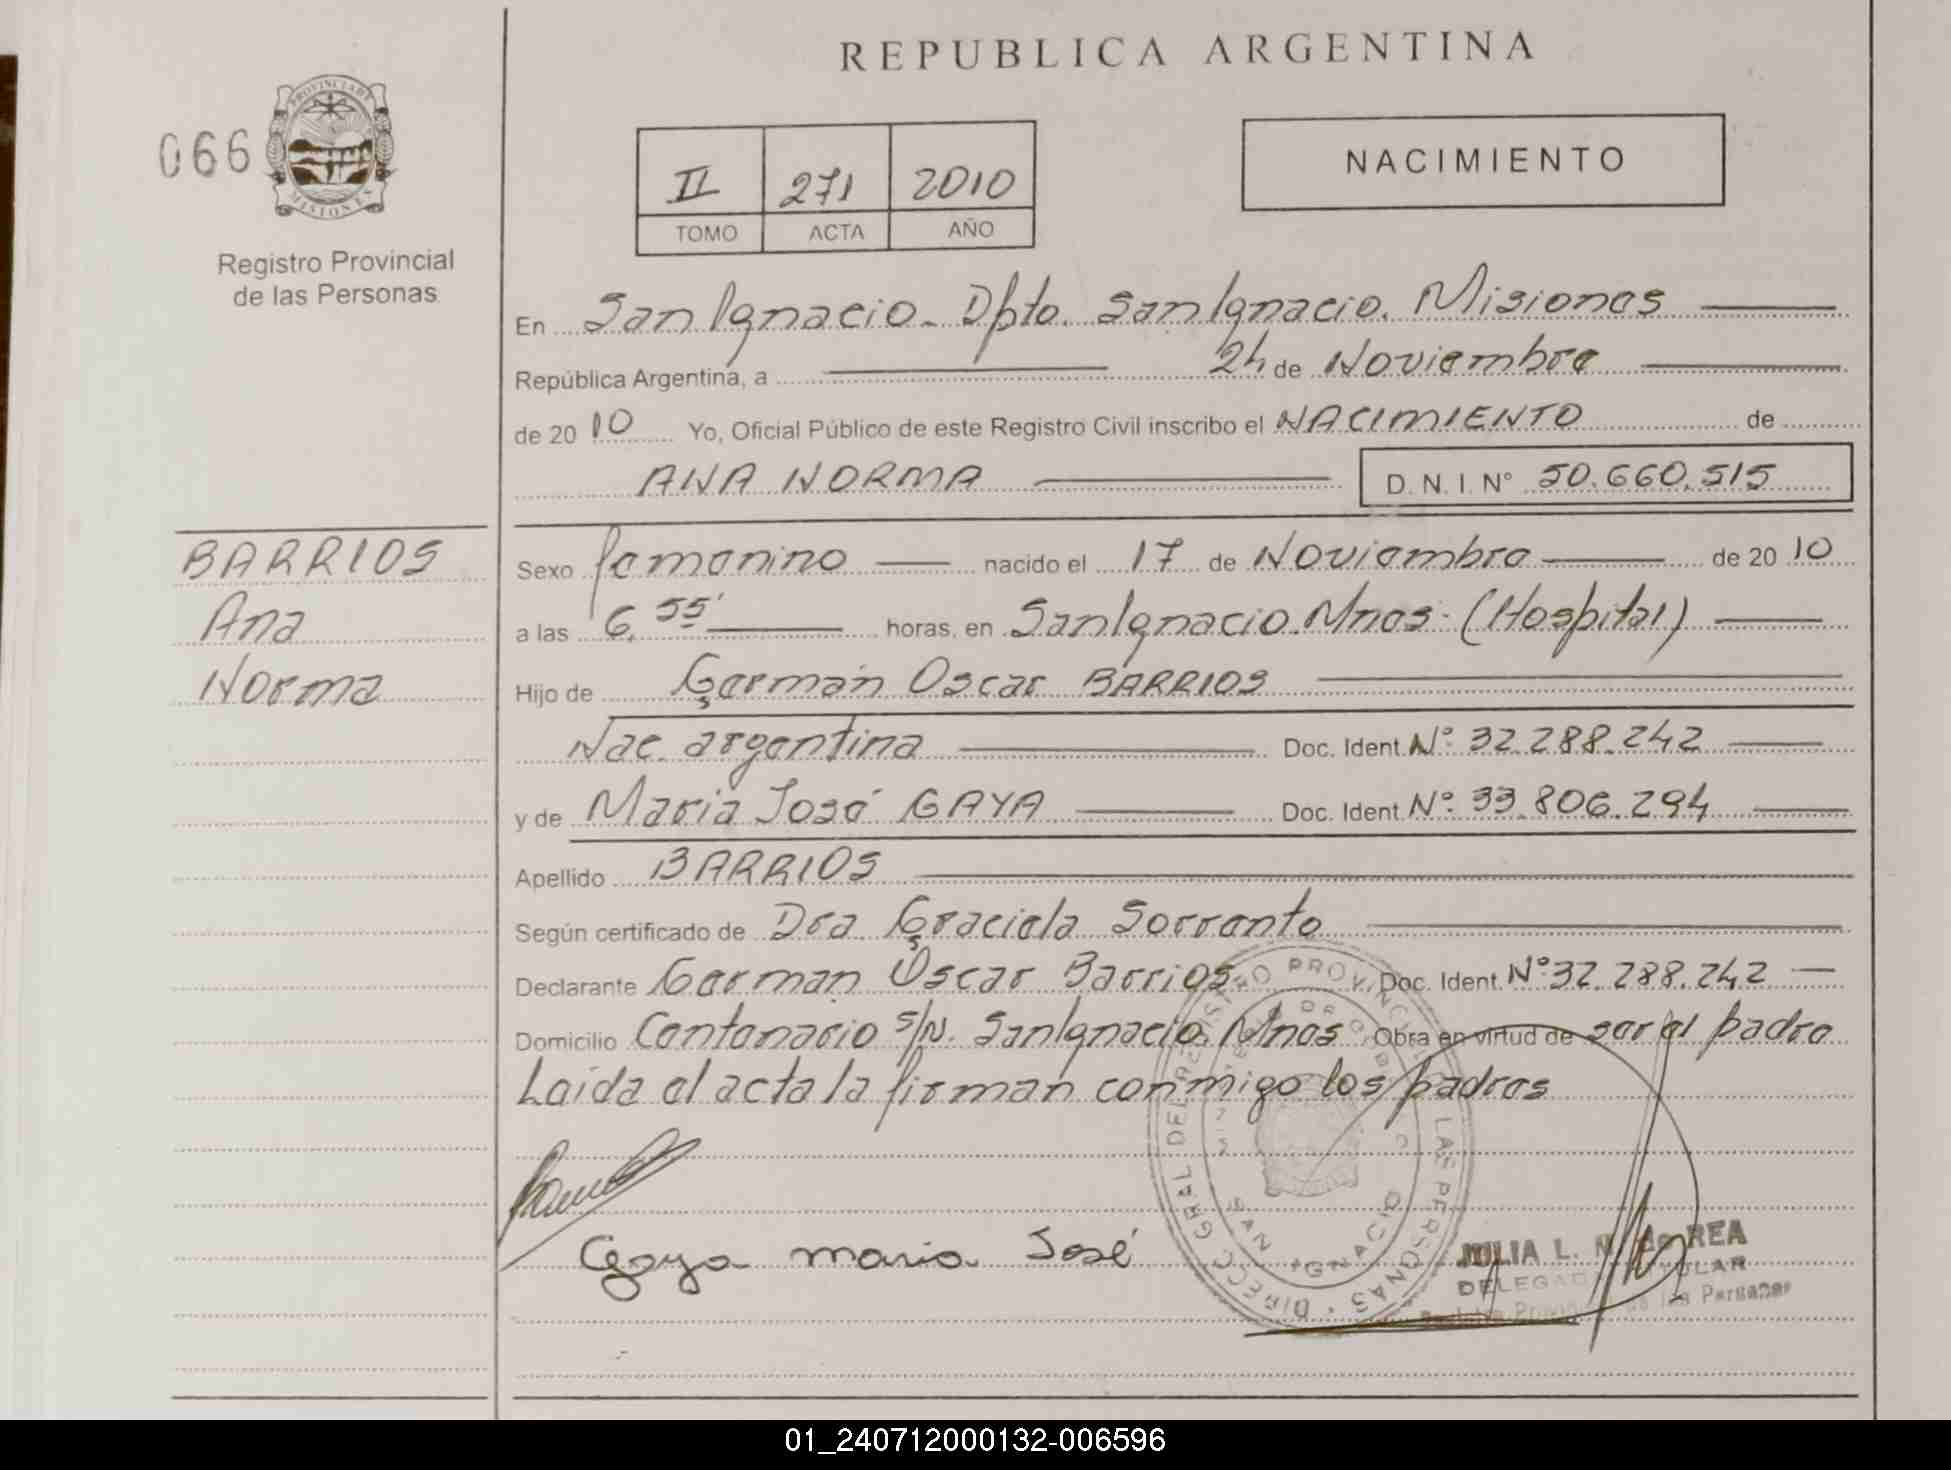 REPUBLICA ARGENTINA
066
PROVINCIA DE
MISIONES
Registro Provincial
de las Personas
II 271 2010
TOMO ACTA AÑO
NACIMIENTO
En San Ignacio. Dpto. San Ignacio. Misiones
República Argentina, a 24 de Noviembre
de 2010 Yo, Oficial Público de este Registro Civil inscribo el NACIMIENTO de
ANA NORMA D. N. I. N° 50.660.515
BARRIOS
Ana
Norma
Sexo femenino nacido el 17 de Noviembre de 2010
a las 6,55' horas, en San Ignacio. Mnes. (Hospital)
Hijo de Germán Oscar BARRIOS
Nac. argentina Doc. Ident. N° 32.288.242
y de Maria José GAYA Doc. Ident. N° 33.806.294
Apellido BARRIOS
Según certificado de Dra. Graciela Sorrento
Declarante German Oscar Barrios Doc. Ident. N° 32.288.242
Domicilio Centenario S/N. San Ignacio. Mnes Obra en virtud de ser el padre
Leida el acta la firman conmigo los padres
Gaya maria José
DIRECC GRAL DEL REGISTRO PROVINCIAL LAS PERSONAS
SAN IGNACIO
JULIA L. de REA
Provincial de las Personas
01_240712000132-006596